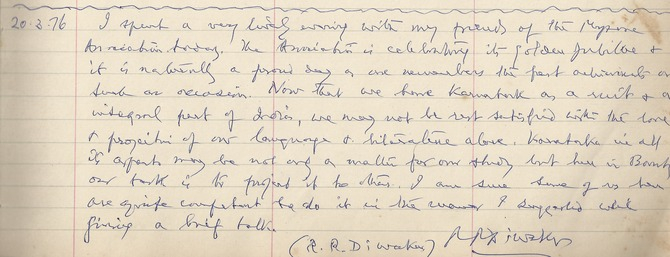 20.3.76 I spent a very lively evening with my friends of the Mysore
Association today. The Association is celebrating its Golden Jubilee &
it is naturally a proud day as one remembers the past achievements on
such an occasion. Now that we have Karnatak as a unit & an
integral part of India, we may not be rest satisfied with the love
& projection of our language & literature alone. Karnataka in all
its aspects may be not only a matter for our study but here in Bombay
our task is to project it to others. I am sure some of us here
are quite competent to do it in the manner I suggested while
giving a brief talk.
(R. R. Diwakar) RRDiwakar